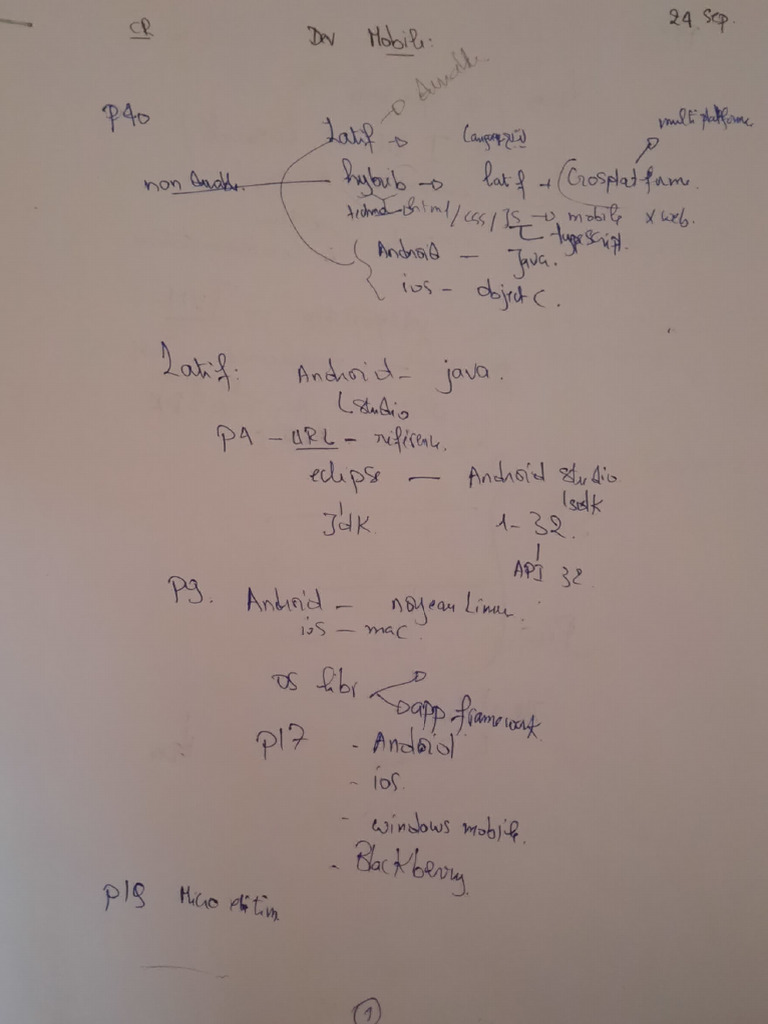 CR
Dev Mobile:
24 Sep.
P40
Latif →
multiplatforme
non
hybrib → latif + (Crosplatforme.
html/css/JS → mobile x web.
typescript.
Android - Java.
ios - object C.
Latif: Android - java.
studio
P4 - URL - réference.
eclipse — Android studio
sdk
Jdk
1-32.
API 32
P9. Android - noyeau Linux.
ios - mac.
OS libr
app framework
P17 - Android
- ios.
- windows mobile.
- Blackberry
P19 Micro edition
1